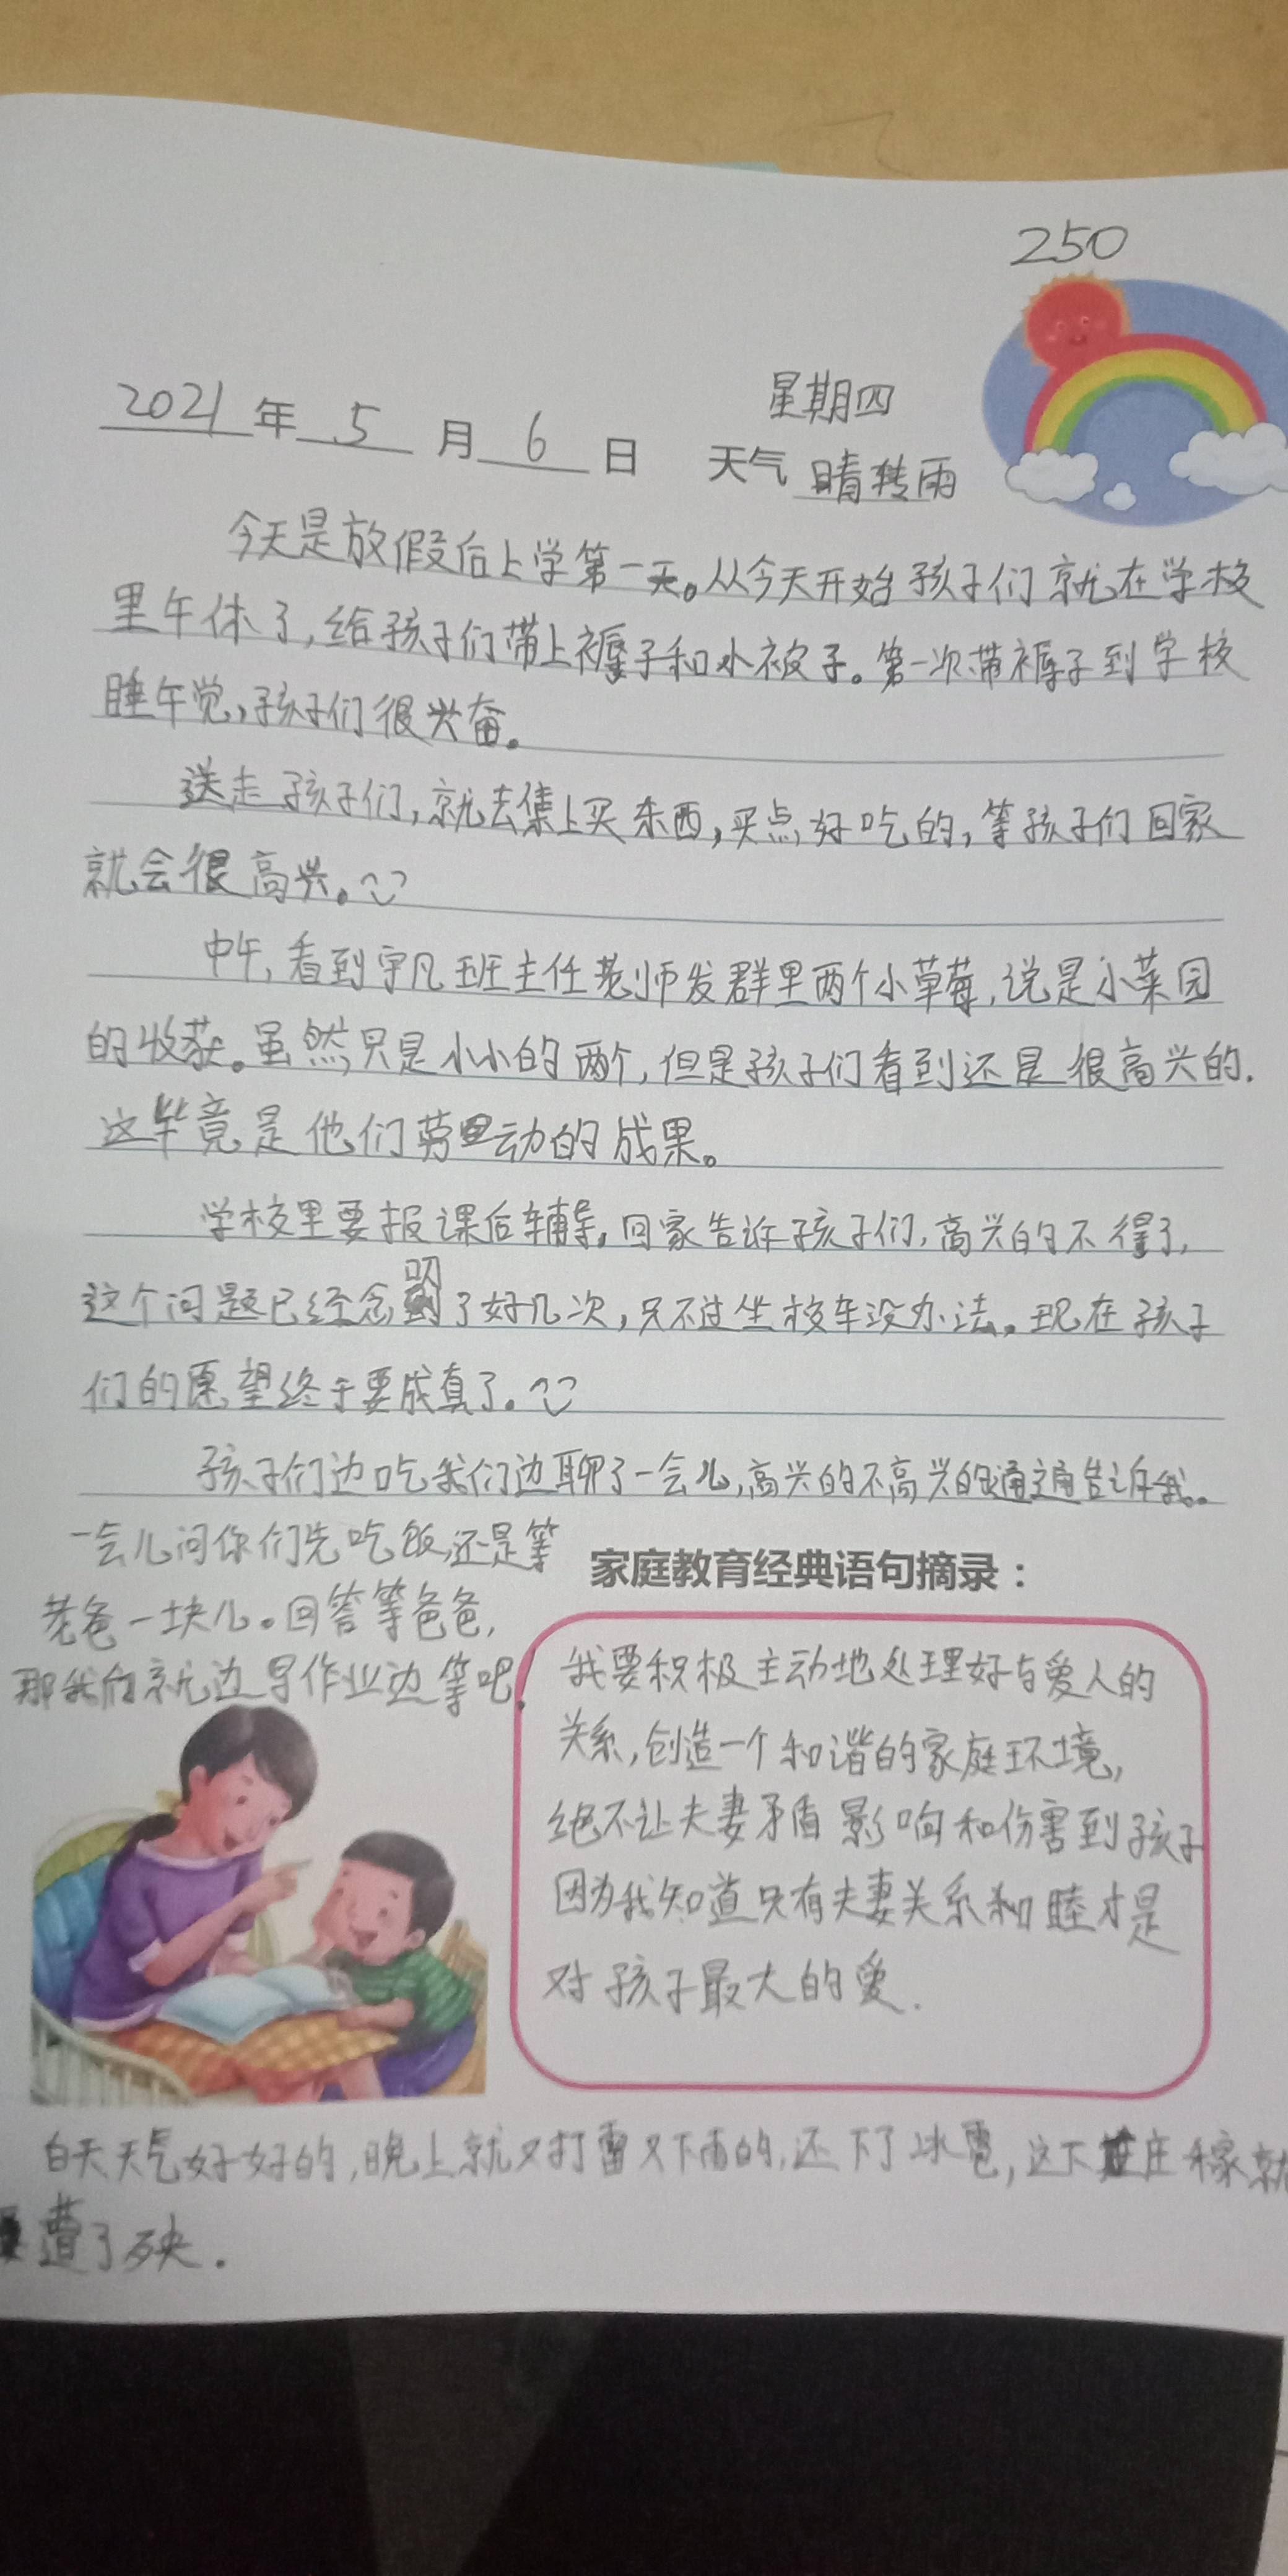 250
星期四
2021年5月6日 天气晴转雨
今天是放假后上学第一天。从今天开始孩子们就在学校
里午休了,给孩子们带上褥子和小被子。第一次带褥子到学校
睡午觉,孩子们很兴奋。
送走孩子们,就去集上买东西,买点好吃的,等孩子们回家
就会很高兴。
中午,看到宇凡班主任老师发群里两个小草莓,说是小菜园
的收获。虽然只是小小的两个,但是孩子们看到还是很高兴的.
这毕竟是他们劳动的成果。
学校里要报课后辅导,回家告诉孩子们,高兴的不得了,
这个问题已经念叨了好几次,只不过坐校车没办法。现在孩子
们的愿望终于要成真了。
孩子们边吃我们边聊了一会儿,高兴的不高兴的通通告诉我。
一会儿问你们先吃饭还是等
老爸一块儿。回答等爸爸,
那我们就边写作业边等吧.
家庭教育经典语句摘录:
我要积极主动地处理好与爱人的
关系,创造一个和谐的家庭环境,
绝不让夫妻矛盾影响和伤害到孩子
因为我知道只有夫妻关系和睦才是
对孩子最大的爱.
白天天气好好的,晚上就又打雷又下雨的,还下了冰雹,这下庄稼就
遭了殃.